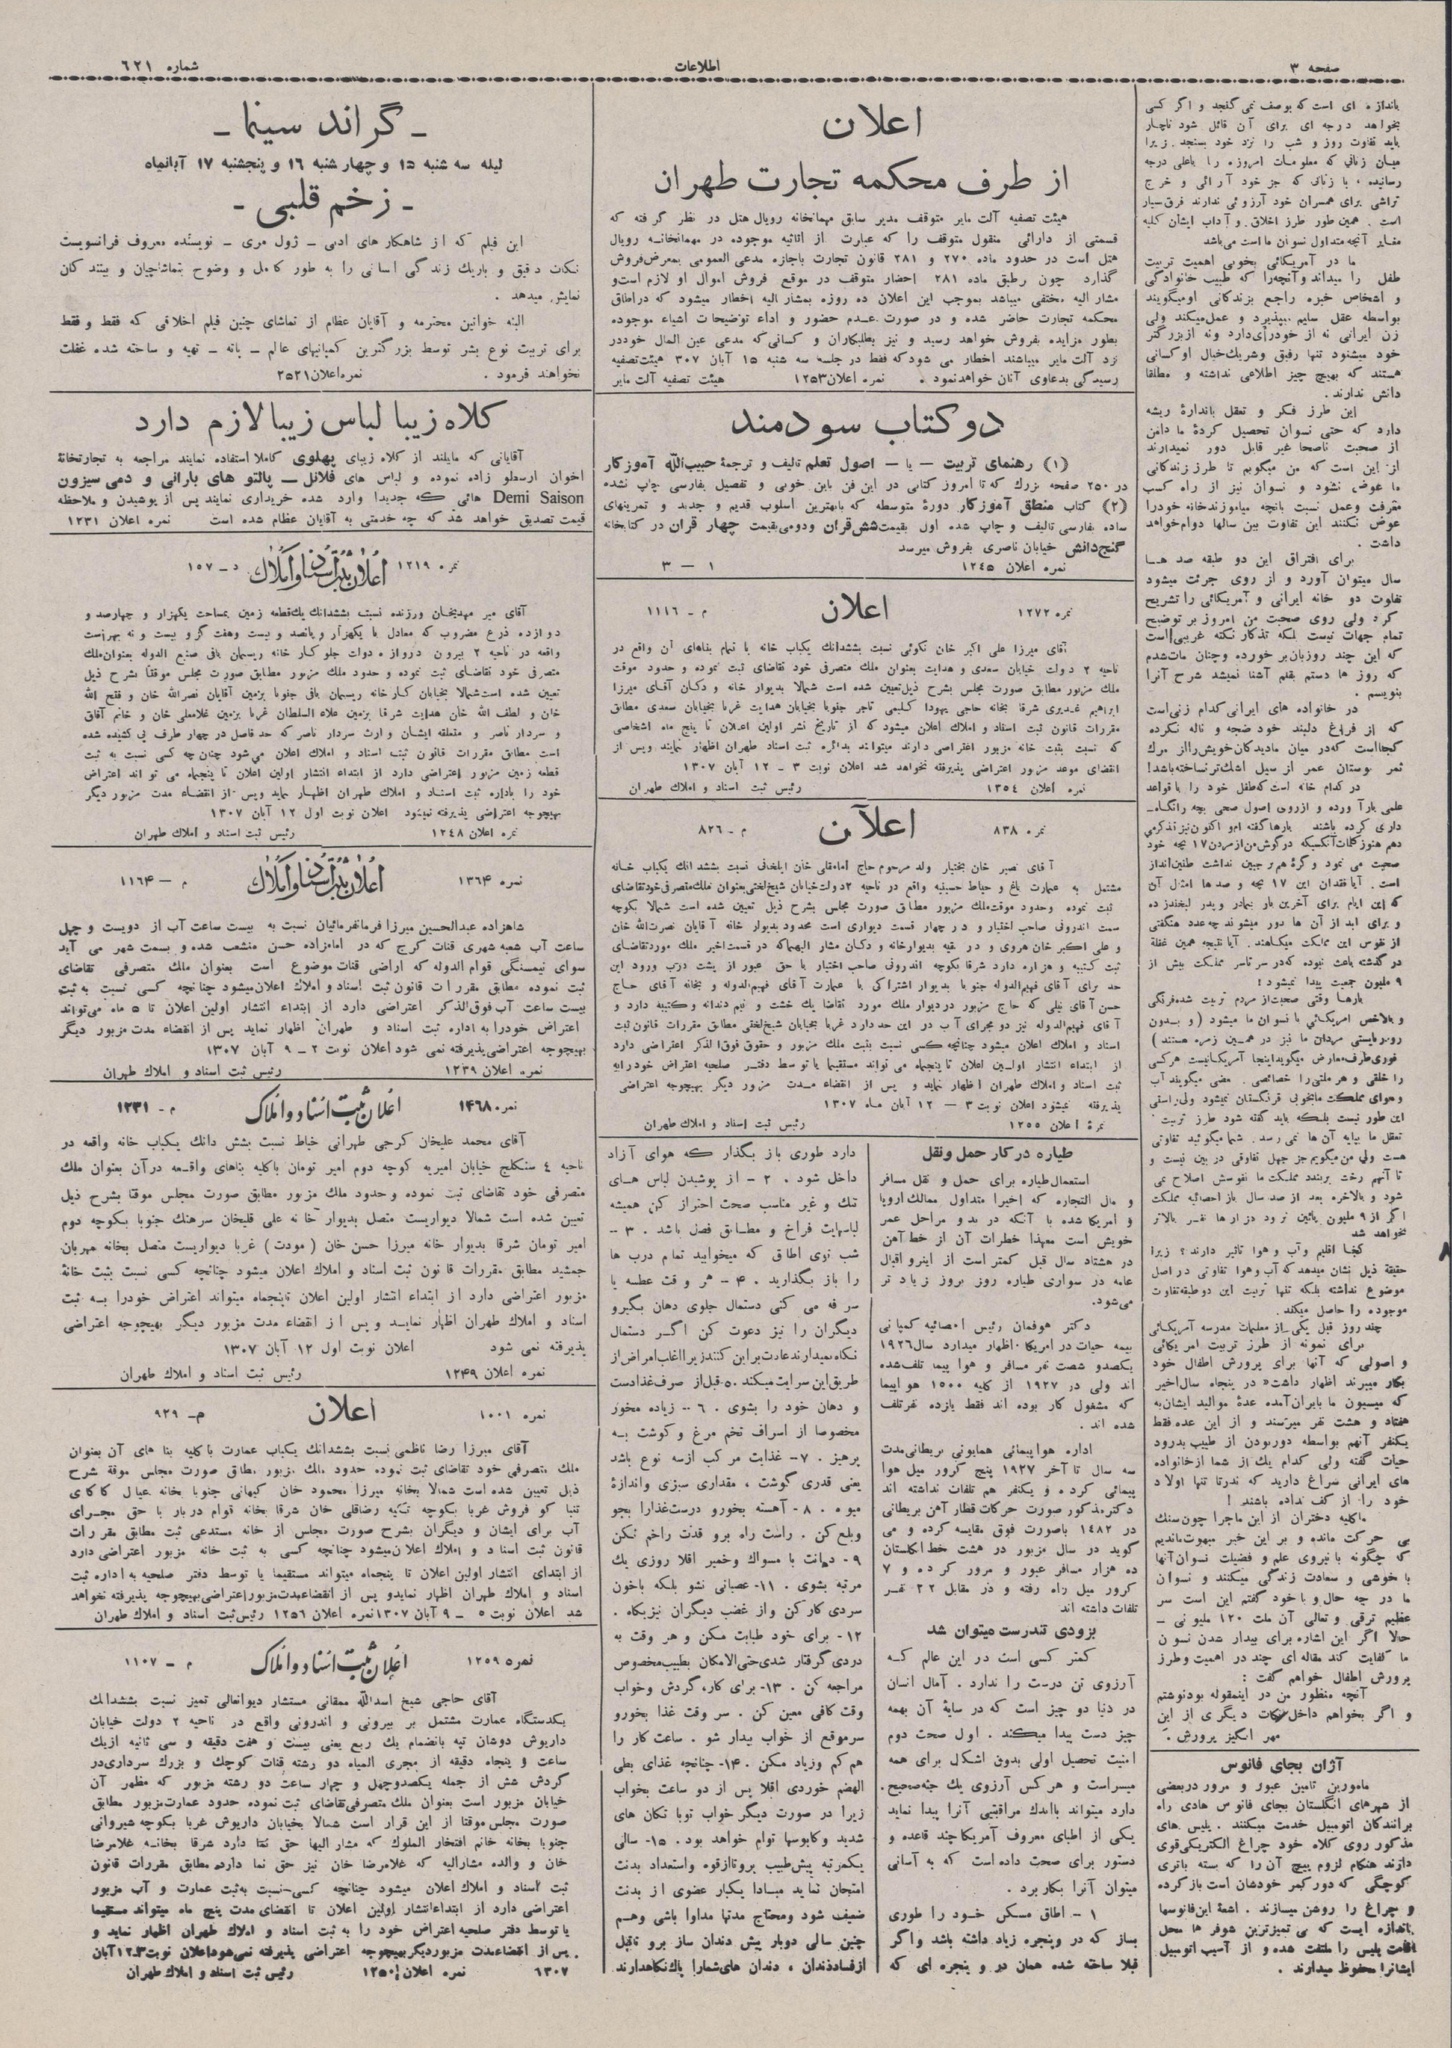 صفحه ۳
اطلاعات
شماره ۶۲۱
باندازه ای است که بوصف نمی گنجد و اگر کسی
بخواهد درجه ای برای آن قائل شود ناچار
باید تفاوت روز و شب را نزد خود بسنجد زیرا
میان زنانی که معلومات امروزه را باعلی درجه
رسانیده با زنانی که جز خود آرائی و خرج
تراشی برای همسران خود آرزوئی ندارند فرق بسیار
است . همین طور طرز اخلاق و آداب ایشان کلیه
مغایر آنچه متداول نسوان ما است می باشد
ما در آمریکائی بخوبی اهمیت تربیت
طفل را میداند و آنچه را که طبیب خانوادگی
و اشخاص خبره راجع بزندگانی او میگویند
بواسطه عقل سلیم میپذیرد و عمل میکند ولی
زن ایرانی نه از خود رأی دارد و نه از بزرگتر
خود میشنود تنها رفیق و شریک خیال او کسانی
هستند که بهیچ چیز اطلاعی نداشته و مطلقا
دانش ندارند .
این طرز فکر و تعقل باندازۀ ریشه
دارد که حتی نسوان تحصیل کردۀ ما دامن
از صحبت ناصحا غیر قابل دور نمیدارند
از این است که من میگویم تا طرز زندگانی
ما عوض نشود و نسوان نیز از راه کسب
معرفت و عمل نسبت بانچه میاموزند خانه خود را
عوض نکنند این تفاوت بین سالها دوام خواهد
داشت .
برای افتراق این دو طبقه صد هـا
سال میتوان آورد و از روی جرئت میشود
تفاوت دو خانه ایرانی و آمریکائی را تشریح
کرد ولی روی صحبت من امروز بر توضیح
تمام جهات نیست بلکه تذکار نکته غریبی است
که این چند روز بان بر خورده و چنان مات شدم
که روز ها دستم بقلم آشنا نمیشد شرح آنرا
بنویسم .
در خانواده های ایرانی کدام زنی است
که از فراغ دلبند خود ضجه و ناله نکرده
کجا است که در میان مادیدگان خویش راز مرگ
ثمر بوستان عمر از سیل اشک تر نساخته باشد!
در کدام خانه است که طفل خود را با قواعد
علمی بار آورده و از روی اصول صحی بچه را نگاه-
داری کرده باشند
صحبت می نمود و گره هم بر جبین نداشت طنین انداز
است . آیا فقدان این ۱۷ بچه و صد ها امثال آن
که این ایام برای آخرین بار بمادر و پدر لبخند زده
و برای ابد از آن ها دور میشوند چه عدد هنگفتی
از نفوس این مملکت میکاهند . آیا نتیجه همین غفلة
در گذشته باعث نبوده که در سر تاسر مملکت بیش از
۹ ملیون جمعیت پیدا نمیشود !
بارها وقتی صحبت از مردم تربیت شده فرنگی
و بالاخص امریکائی با نسوان ما میشود ( و بـدون
رودربایستی مردان ما نیز در همـین زمره هستند )
فوری طرف معارض میگوید اینجا آمریکا نیست هر کسی
را خلقی و هر ملتی را خصائصی . بعضی میگویند آب
و هوای مملکت ما بخوبی فرنگستان نمیشود ولی براستی
این طور نیست بلـکه باید گفته شود طرز تربیت
تعقل ما بپایه آن ها نمی رسد . شما میگوئید تفاوتی
هست ولی من میگویم جز جهل تفاوتی در بین نیست و
تا آنهم رخت بر نبندد مملکت ما نفوسش اصلاح نمی
شود و بالاخره بعد از صد سال باز احصائیه مملکت
اگر از ۹ ملیون پائین نرود هزار ها نفـر بالاتر
نخواهد شد
کجا اقلیم و آب و هوا تاثیر دارند ؟ زیرا
حقیقة ذیل نشان میدهد که آب و هوا تفاوتی در اصل
موضوع نداشته بلکه تنها تربیت این دو طبقه تفاوت
موجوده را حاصل میکند .
چند روز قبل یکی از معلمات مدرسه آمریکائی
برای نمونه از طرز تربیت امریکائی
و اصولی که آنها برای پرورش اطفال خود
بکار میبرند اظهار داشت « در پنجاه سال اخیر
که میسیون ما بایران آمده عدۀ موالید ایشان به
هفتاد و هشت نفر میرسند و از این عده فقط
یکنفر آنهم بواسطه دوربودن از طبیب بدرود
حیات گفته ولی کدام یک از شما از خانواده
های ایرانی سراغ دارید که ندرتا تنها اولاد
خود را از کف نداده باشند !
ما کلیه دختران از این ماجرا چون سنگ
بی حرکت مانده و بر این خبر مبهوت ماندیم
که چگونه با نیروی علم و فضیلت نسوان آنها
با خوشی و سعادت زندگی میکنند و نسوان
ما در چه حال و با خود گفتم این است سر
عظیم ترقی و تعالی آن ملت ۱۲۰ ملیونی -
حالا اگر این اشاره برای بیدار شدن نسوان
ما کفایت کند مقاله ای چند در اهمیت و طرز
پرورش اطفال خواهم گفت :
آنچه منظور من در اینمقوله بود نوشتم
و اگر بخواهم داخل نکات دیگری از این
مهر انگیز پرورش .
آژان بجای فانوس
مامورین تامین عبور و مرور در بعضی
از شهر های انگلستان بجای فانوس هادی راه
برانندگان اتومبیل خدمت میکنند . پلیس های
مذکور روی کلاه خود چراغ الکتریکی قوی
دارند هنگام لزوم پیچ آن را که بسته باتری
کوچکی که دور کمر خودشان است باز کرده
و چراغ را روشن میسازند . اشعۀ این فانوسها
باندازه ایست که بی تمیزترین شوفر ها محل
اقامت پلیس را ملتفت شده و از آسیب اتومبیل
ایشانرا محفوظ میدارند .
اعلان
از طرف محکمه تجارت طهران
هیئت تصفیه آلت مایر متوقف مدیر سابق مهمانخانه رویال هتل در نظر گرفته که
قسمتی از دارائی منقول متوقف را که عبارت از اثاثیه موجوده در مهمانخانـه رویال
هتل است در حدود ماده ۲۷۰ و ۲۸۱ قانون تجارت باجازه مدعی العمومی بمعرض فروش
گذارد چون بر طبق ماده ۲۸۱ احضار متوقف در موقع فروش اموال او لازم است و
مشار الیه مختفی میباشد بموجب این اعلان ده روزه بمشار الیه اخطار میشود که در اطاق
محکمه تجارت حاضر شده و در صورت عـدم حضور و اداء توضیحات اشیاء موجوده
بطور مزایده بفروش خواهد رسید و نیز بطلبکاران و کسانی که مدعی عین المال خود در
نزد آلت مایر میباشند اخطار می شود که فقط در جلسه سه شنبه ۱۵ آبان ۳۰۷ هیئت تصفیه
رسیدگی بدعاوی آنان خواهد نمود . نمره اعلان ۱۲۵۳ هیئت تصفیه آلت مایر
دو کتاب سودمند
(۱) رهنمای تربیت — یا — اصول تعلم تالیف و ترجمۀ حبیب الله آموزکار
در ۲۵۰ صفحه بزرک که تا امروز کتابی در این فن باین خوبی و تفصیل بفارسی چاپ نشده
(۲) کتاب منطق آموزکار دورۀ متوسطه که بابهترین اسلوب قدیم و جدید و تمرینهای
ساده بفارسی تالیف و چاپ شده اول بقیمت شش قران و دومی بقیمت چهار قران در کتابخانه
گنج دانش خیابان ناصری بفروش میرسد
نمره اعلان ۱۲۴۵ ۱ — ۳
نمره ۱۲۷۲ اعلان م - ۱۱۱۶
آقای میرزا علی اکبر خان نکوئی نسبت بششدانك یکباب خانه با تمام بناهای آن واقع در
ناحیه ۲ دولت خیابان سعدی و هدایت بعنوان ملک متصرفی خود تقاضای ثبت نموده و حدود موقت
ملك مزبور مطابق صورت مجلس بشرح ذیل تعیین شده است شمالا بدیوار خانه و دکان آقـای میرزا
ابراهیم غدیری شرقا بخانه حاجی یهودا کـلیمی تاجر جنوبا بخیابان هدایت غربا بخیابان سعدی مطابق
مقررات قانون ثبت اسناد و املاك اعلان میشود که از تاریخ نشر اولین اعلان تا پنج ماه اشخاصی
که نسبت بثبت خانه مزبور اعتراضی دارند میتوانند بدائره ثبت اسناد طهران اظهار نمایند و پس از
انقضای موعد مزبور اعتراضی پذیرفته نخواهد شد اعلان نوبت ۳ - ۱۲ آبان ۱۳۰۷
نمره اعلان ۱۳۵۴ رئیس ثبت اسناد و املاك طهران
نمره ۸۳۸ اعلان م - ۸۲۶
آقای نصیر خان بختیار ولد مرحوم حاج امامقلی خان ایلخانی نسبت بششدانك یکباب خـانه
مشتمل به عمارت باغ و حیاط حسینیه واقع در ناحیه ۲ دولت خیابان شیخ لختی بعنوان ملك متصرفی خود تقاضای
ثبت نموده و حدود موقت ملك مزبور مطابق صورت مجلس بشرح ذیل تعیین شده است شمالا بکوچه
سمت اندرونی صاحب اختیار و در چهار قسمت دیواری است محدود بدیوار خانه آقایان نصرت الله خان
و علی اکبر خان هروی و در بقیه بدیوار خانه و دکان مشار الیهما که در قسمت اخیر ملك مورد تقاضای
ثبت کتیبه و هزاره دارد شرقا بکوچه اندرونی صاحب اختیار با حق عبور از پشت درب ورود این
حد برای آقای فهیم الدوله جنوبا بدیوار اشتراکی با عمارت آقای فهیم الدوله و بخانه آقای حاج
حسن آقای نیلی که حاج مزبور در دیوار ملك مورد تقاضا یك خشت و نیم دندانه و کتیبه دارد و
آقای فهیم الدوله نیز دو مجرای آب در این حد دارد غربا بخیابان شیخ لختی مطابق مقررات قانون ثبت
اسناد و املاك اعلان میشود چنانچه کـسی نسبت بثبت ملك مزبور و حقوق فوق الذکر اعتراضی دارد
از ابتداء انتشار اولـین اعلان تا پنجماه می تواند مستقیما یا توسط دفتر صلحیه اعتراض خود را به
ثبت اسناد و املاك طهران اظهار نماید و پس از انقضاء مـدت مزبور دیگر بهیچوجه اعتراضی
پذیرفته نمیشود اعلان نوبت ۳ — ۱۲ آبان ماه ۱۳۰۷
نمرۀ اعلان ۱۲۵۵ رئیس ثبت اسناد و املاك طهران
طیاره در کار حمل و نقل
استعمال طیاره برای حمل و نقل مسافر
و مال التجاره که اخیرا متداول ممالک اروپا
و امریکا شده با آنکه در بدو مراحل عمر
خویش است معهذا خطرات آن از خط آهن
در هشتاد سال قبل کمتر است از اینرو اقبال
عامه در سواری طیاره روز بروز زیاد تر
می شود .
دکتر هوفمان رئیس احصائیه کمپانی
بیمه حیات در امریکا اظهار میدارد سال ۱۹۲۶
یکصد و شصت نفر مسافر و هوا پیما تلف شده
اند ولی در ۱۹۲۷ از کلیه ۱۵۰۰ هوا پیما
که مشغول کار بوده اند فقط یازده نفر تلف
شده اند .
اداره هوا پیمائی همایونی بریطانی مدت
سه سال تا آخر ۱۹۲۷ پنج کرور میل هوا
پیمائی کرده و یکنفر هم تلفات نداشته اند
دکتر مذکور صورت حرکات قطار آهن بریطانی
در ۱۴۸۲ باصورت فوق مقایسه کرده و می
گوید در سال مزبور در هشت خط انگلستان
ده هزار مسافر عبور و مرور کرده و ۷
کرور میل راه رفته و در مقابل ۲۲ نفـر
تلفات داشته اند
بزودی تندرست میتوان شد
کمتر کسی است در این عالم کـه
آرزوی تن درست را ندارد . آمال انسان
در دنیا دو چیز است که در سایۀ آن بهمه
چیز دست پیدا میکند . اول صحت دوم
امنیت تحصیل اولی بدون اشکال برای همه
میسر است و هر کس آرزوی یك جثه صحیح
دارد میتواند باندك مراقبتی آنرا پیدا نماید
یکی از اطبای معروف آمریکا چند قاعده و
دستور برای صحت داده است که به آسانی
میتوان آنرا بکار برد .
۱ - اطاق مسکن خود را طوری
بساز که در و پنجره زیاد داشته باشد و اگر
قبلا ساخته شده همان در و پنجره ای که
دارد طوری باز بگذار که هوای آزاد
داخل شود . ۲ - از پوشیدن لباس هـای
تنك و غیر مناسب صحت احتراز کن همیشه
لباسهایت فراخ و مطـابق فصل باشد . ۳ -
شب توی اطاق که میخوابید تمام درب ها
را باز بگذارید . ۴ - هر وقت عطسه یا
سرفه می کنی دستمال جلوی دهان بگیر و
دیگران را نیز دعوت کن اگـر دستمال
نگاه نمیدارند عادت بر این کنند زیرا اغلب امراض از
طریق این سرایت میکند . ۵ - قبل از صرف غذا دست
و دهان خود را بشوی . ۶ - زیاده مخور
مخصوصا از اسراف تخم مرغ و گوشت بـه
پرهیز . ۷ - غذایت مرکب از سه نوع باشد
یعنی قدری گوشت ، مقداری سبزی و اندازۀ
میوه . ۸ - آهسته بخور و درست غذا را بجو
و بلع کن . راست راه برو قدت راخم نکن
۹ - دهانت با مسواك و خمیر اقلا روزی یك
مرتبه بشوی . ۱۱ - عصبانی نشو بلکه با خون
سردی کار کن و از غضب دیگران نیز بکاه .
۱۲ - برای خود طبابت مکن و هر وقت به
دردی گرفتار شدی حتی الامکان بطبیب مخصوص
مراجعه کن . ۱۳ - برای کار ، گردش و خواب
وقت کافی معین کن . سر وقت غذا بخور و
سر موقع از خواب بیدار شو . ساعت کار را
هم کم و زیاد مکن . ۱۴ - چنانچه غذای بطی
الهضم خوردی اقلا پس از دو ساعت بخواب
زیرا در صورت دیگر خواب تو با تکان های
شدید و کابوسها توام خواهد بود . ۱۵ - سالی
یکمرتبه پیش طبیب برو تا از قوه و استعداد بدنت
امتحان نماید مبادا یکبار عضوی از بدنت
ضعیف شود و محتاج مدتها مداوا باشی و هـم
چنین سالی دوبار پیش دندان ساز برو تا قبل
از فساد دندان ، دندان های شما را پاك نگاهدارند
- گراند سینما -
لیله سه شنبه ۱۵ و چهار شنبه ۱۶ و پنجشنبه ۱۷ آبانماه
- زخم قلبی -
این فیلم که از شاهکار های ادبی - ژول مری - نویسنده معروف فرانسویست
نکات دقیق و باریك زندگی انسانی را به طور کامل و وضوح بتماشاچیان و بینندگان
نمایش میدهد .
البته خواتین محترمه و آقایان عظام از تماشای چنین فیلم اخلاقی که فقط و فقط
برای تربیت نوع بشر توسط بزرگترین کمپانیهای عالم - پاته - تهیه و ساخته شده غفلت
نخواهند فرمود . نمره اعلان ۲۵۲۱
کلاه زیبا لباس زیبا لازم دارد
آقایانی که مایلند از کلاه زیبای پهلوی کاملا استفاده نمایند مراجعه به تجارتخانۀ
اخوان ارسطو زاده نموده و لباس های فلانل - پالتو های بارانی و دمی سیزون
Demi Saison هائی که جدیدا وارد شده خریداری نمایند پس از پوشیدن و ملاحظه
قیمت تصدیق خواهد شد که چه خدمتی به آقایان عظام شده است نمره اعلان ۱۲۳۱
نمره ۱۲۱۹ اعلان ثبت اسناد و املاک د - ۱۵۷
آقای میر مهدیخان ورزنده نسبت بششدانك یك قطعه زمین بمساحت یکهزار و چهارصد و
دوازده ذرع مضروب که معادل با یکهزار و پانصد و بیست و هفت گز و بیست و نه بهر است
واقعه در ناحیه ۲ بیرون دروازه دولت جلو کار خانه ریسمان بافی صنیع الدوله بعنوان ملك
متصرفی خود تقاضای ثبت نموده و حدود ملك مزبور مطابق صورت مجلس موقتا بشرح ذیل
تعیین شده است شمالا بخیابان کـار خانه ریسمان بافی جنوبا بزمین آقایان نصرالله خان و فتح الله
خان و لطف الله خان هدایت شرقا بزمین علاء السلطان غربا بزمین غلامعلی خان و خانم آفاق
و سردار ناصر و متعلقه ایشان و وارث سردار ناصر که حد فاصل در چهار طرف پی کنیده شده
است مطابق مقررات قانون ثبت اسناد و املاك اعلان می شود چنان چه کسی نسبت به ثبت
قطعه زمین مزبور اعتراضی دارد از ابتداء انتشار اولین اعلان تا پنجماه می تواند اعتراض
خود را باداره ثبت اسناد و املاك طهران اظهار نماید و پس از انقضاء مدت مزبور دیگر
بهیچوجه اعتراضی پذیرفته نمیشود اعلان نوبت اول ۱۲ آبان ۱۳۰۷
نمره اعلان ۱۲۴۸ رئیس ثبت اسناد و املاك طهران
نمره ۱۳۶۴ اعلان ثبت اسناد و املاک م - ۱۱۶۴
شاهزاده عبدالحسین میرزا فرمانفرمائیان نسبت به بیست ساعت آب از دویست و چهل
ساعت آب شعبه شهری قنات کرج که در امامزاده حسن منشعب شده و بسمت شهر می آید
سوای نیمسنگی قوام الدوله که اراضی قنات موضوع است بعنوان ملك متصرفی تقاضای
ثبت نموده مطابق مقررات قانون ثبت اسناد و املاك اعلان میشود چنانچه کسی نسبت به ثبت
بیست ساعت آب فوق الذکر اعتراضی دارد از ابتداء انتشار اولین اعلان تا ۵ ماه می تواند
اعتراض خود را به اداره ثبت اسناد و طهران اظهار نماید پس از انقضاء مدت مزبور دیگر
بهیچوجه اعتراضی پذیرفته نمی شود اعلان نوبت ۲ - ۹ آبان ۱۳۰۷
نمره اعلان ۱۲۳۹ رئیس ثبت اسناد و املاك طهران
نمره ۱۴۶۸ اعلان ثبت اسناد و املاک م - ۱۲۳۱
آقای محمد علیخان کرجی طهرانی خیاط نسبت بشش دانك یکباب خانه واقعه در
ناحیه ۴ سنگلج خیابان امیریه کوچه دوم امیر تومان باکلیه بناهای واقـعه در آن بعنوان ملك
متصرفی خود تقاضای ثبت نموده و حدود ملك مزبور مطابق صورت مجلس موقتا بشرح ذیل
تعیین شده است شمالا دیواریست متصل بدیوار خانه علی قلیخان سرهنك جنوبا بکوچه دوم
امیر تومان شرقا بدیوار خانه میرزا حسن خان ( مودت ) غربا دیواریست متصل بخانه مهربان
جمشید مطابق مقررات قانون ثبت اسناد و املاك اعلان میشود چنانچه کسی نسبت بثبت خانۀ
مزبور اعتراضی دارد از ابتداء انتشار اولین اعلان تا پنجماه میتواند اعتراض خود را بـه ثبت
اسناد و املاك طهران اظهار نمایـد و پس از انقضاء مدت مزبور دیگر بهیچوجه اعتراضی
پذیرفته نمی شود اعلان نوبت اول ۱۲ آبان ۱۳۰۷
نمره اعلان ۱۲۴۹ رئیس ثبت اسناد و املاك طهران
نمره ۱۰۰۱ اعلان م - ۹۲۹
آقای میرزا رضا ناظمی نسبت بششدانك یکباب عمارت با کلیه بنا های آن بعنوان
ملك متصرفی خود تقاضای ثبت نموده حدود ملك مزبور مطابق صورت مجلس موقة شرح
ذیل تعیین شده است شمالا بخانه میرزا محمود خان کیهانی جنوبا بخانه عیال کاکای
تنبا کو فروش غربا بکوچه تکیه رضاقلی خان شرقا بخانه قوام دربار با حق مجـرای
آب برای ایشان و دیگران بشرح صورت مجلس از خانه مستدعی ثبت مطابق مقررات
قانون ثبت اسناد و املاك اعلان میشود چنانچه کسی به ثبت خانه مزبور اعتراضی دارد
از ابتدای انتشار اولین اعلان تا پنجماه میتواند مستقیما یا توسط دفتر صلحیه به اداره ثبت
اسناد و املاك طهران اظهار نماید و پس از انقضاء مدت مزبور اعتراضی بهیچوجه پذیرفته نخواهد
شد اعلان نوبت ۵ - ۹ آبان ۱۳۰۷ نمره اعلان ۱۲۵۶ رئیس ثبت اسناد و املاك طهران
نمره ۱۲۵۹ اعلان ثبت اسناد و املاک م - ۱۱۰۷
آقای حاجی شیخ اسدالله ممقانی مستشار دیوانعالی تمیز نسبت بششدانك
یکدستگاه عمارت مشتمل بر بیرونی و اندرونی واقع در ناحیه ۲ دولت خیابان
داریوش دوشان تپه بانضمام یك ربع یعنی بیست و هفت دقیقه و سی ثانیه از یك
ساعت و پنجاه دقیقه از مجری المیاه دو رشته قنات کوچك و بزرك سرداری در
گردش شش از جمله یکصد و چهل و چهار ساعت دو رشته مزبور که مظهر آن
خیابان مزبور است بعنوان ملك متصرفی تقاضای ثبت نموده حدود عمارت مزبور مطابق
صورت مجلس موقتا از این قرار است شمالا بخیابان داریوش غربا بکوچه شیروانی
جنوبا بخانه خانم افتخار الملوك که مشار الیها حق بقا دارد شرقا بخانـه غلامرضا
خان و والده مشارالیه که غلامرضا خان نیز حق نما دارد مطابق مقررات قانون
ثبت اسناد و املاك اعلان میشود چنانچه کسی نسبت به ثبت عمارت و آب مزبور
اعتراضی دارد از ابتداء انتشار اولین اعلان تا انقضای مدت پنج ماه میتواند مستقیما
یا توسط دفتر صلحیه اعتراض خود را به ثبت اسناد و املاك طهران اظهار نماید و
پس از انقضاء مدت مزبور دیگر بهیچوجه اعتراضی پذیرفته نمی شود اعلان نوبت ۳-۱۲ آبان
۱۳۰۷ نمره اعلان ۱۲۵۰ رئیس ثبت اسناد و املاك طهران